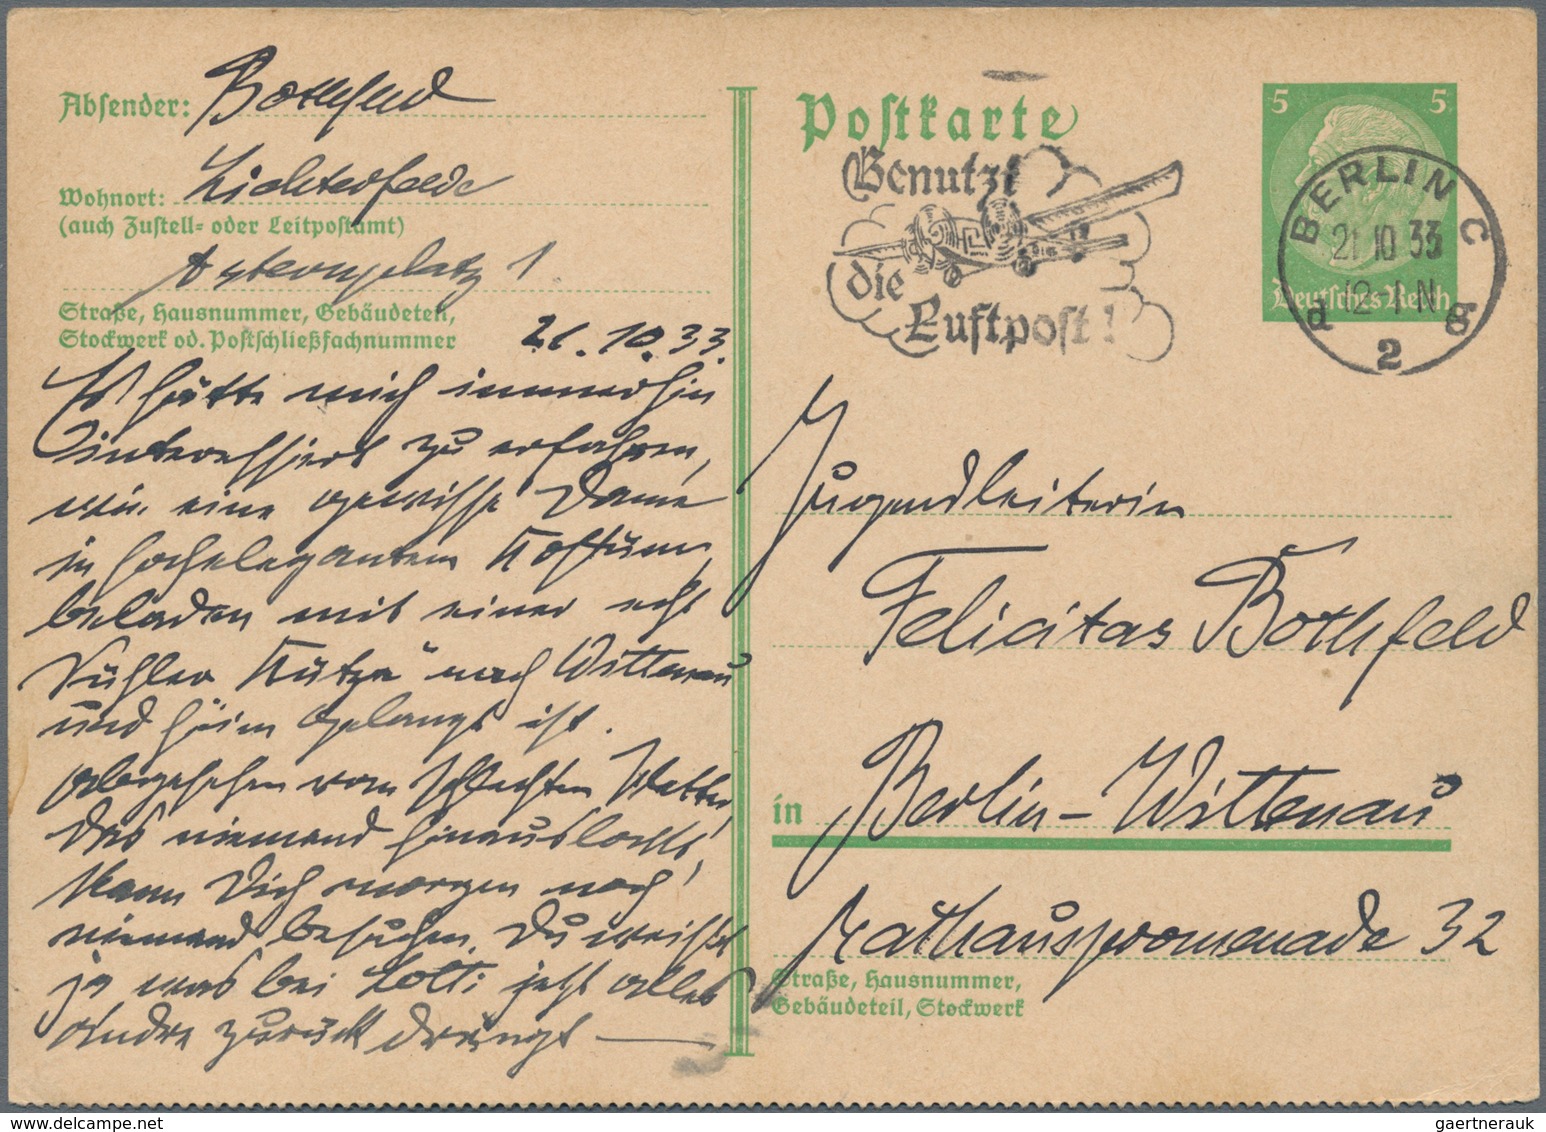 Absender: Bothfeld
Wohnort: Lichterfelde
(auch Zustell- oder Leitpostamt)
Asternplatz 1
Straße, Hausnummer, Gebäudeteil,
Stockwerk od. Postschließfachnummer
21.10.33.
Es hätte mich immerhin
interessiert zu erfahren,
wie eine gewisse Dame
in hochelegantem Kostüm,
beladen mit einer echt
Kutze" nach Wittenau
und heim gelangt ist.
Abgesehen vom schlechten Wetter,
das niemand hinauslockt,
kann Dich morgen noch
niemand besuchen. Du weißt
ja was bei Lotti jetzt alles
Andre zurück drängt —
Postkarte
Benutzt
die
Luftpost!
5 5
Deutsches Reich
BERLIN C
21.10.33
12-1 N
d g
2
Jugendleiterin
Felicitas Bothfeld
in Berlin-Wittenau
Rathauspromenade 32
Straße, Hausnummer,
Gebäudeteil, Stockwerk
gaertnerauk